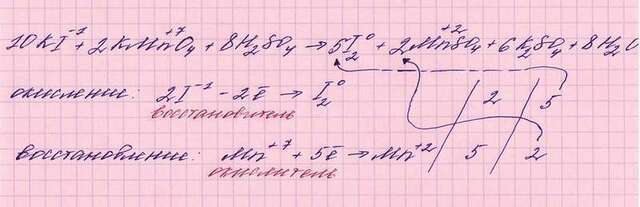 10KI⁻¹ + 2KMn⁺⁷O₄ + 8H₂SO₄ → 5I₂⁰ + 2Mn⁺²SO₄ + 6K₂SO₄ + 8H₂O
окисление: 2I⁻¹ - 2ē → I₂⁰ / 2 / 5
восстановитель
восстановление: Mn⁺⁷ + 5ē → Mn⁺² / 5 / 2
окислитель